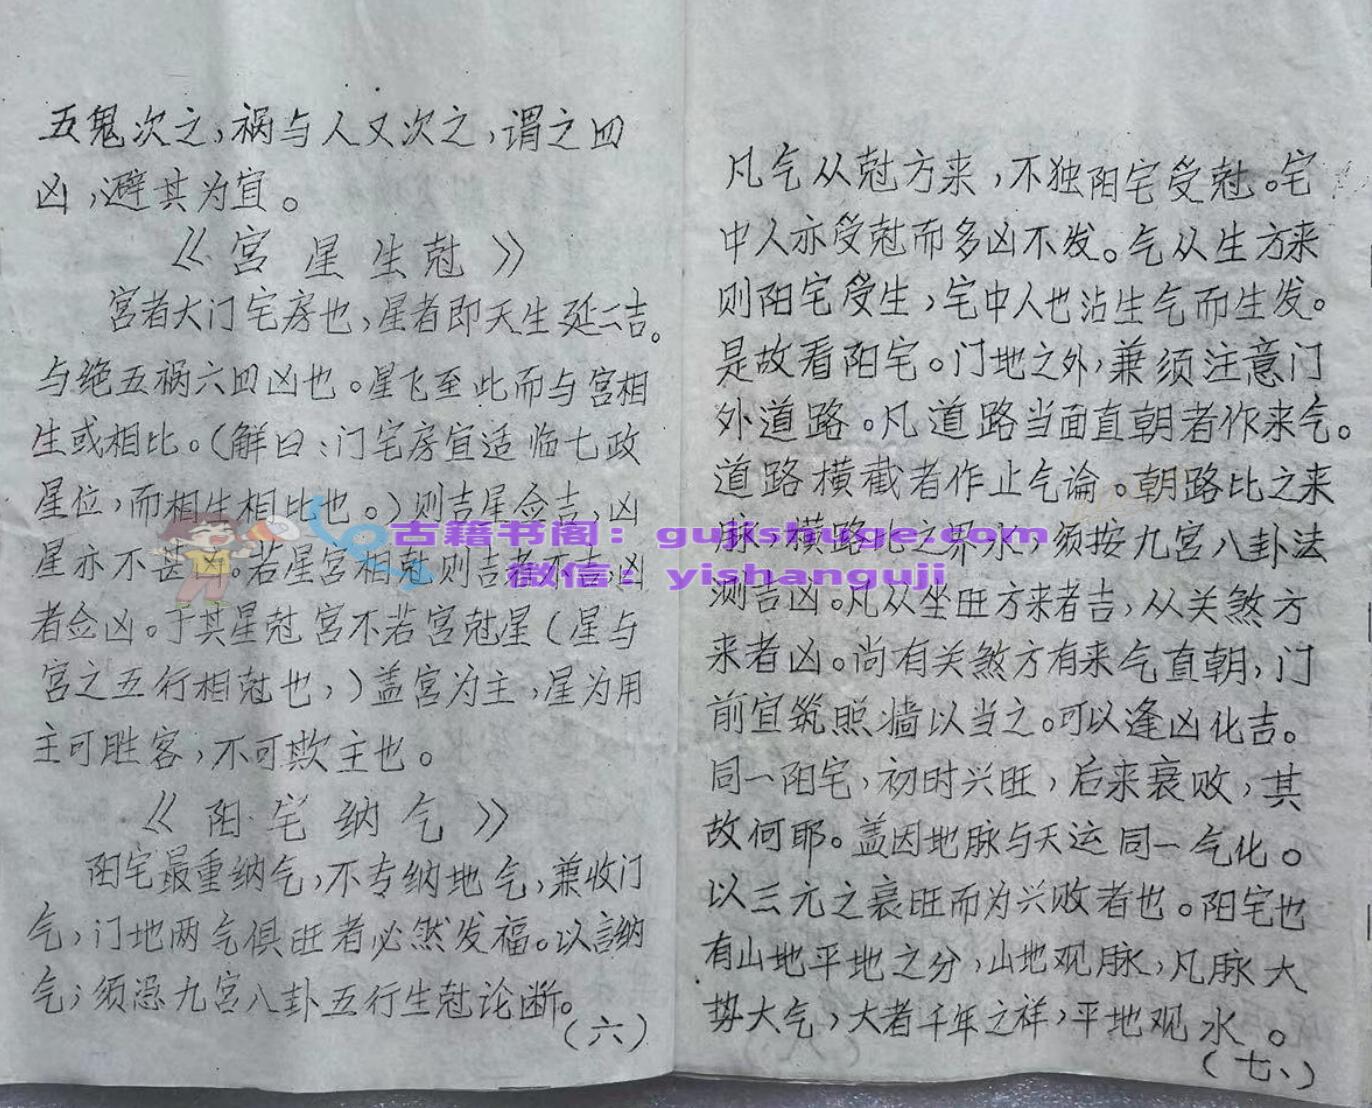 五鬼次之，祸与人又次之，谓之四
凶，避其为宜。
《宫星生尅》
宫者大门宅房也，星者即天生延三吉。
与绝五祸六四凶也。星飞至此而与宫相
生或相比。（解曰：门宅房宜适临七政
星位，而相生相比也。）则吉星佥吉，凶
星亦不甚凶。若星宫相尅则吉者不吉，凶
者佥凶。于其星尅宫不若宫尅星（星与
宫之五行相尅也，）盖宫为主，星为用
主可胜客，不可欺主也。
《阳宅纳气》
阳宅最重纳气，不专纳地气，兼收门
气，门地两气俱旺者必然发福。以言纳
气，须凭九宫八卦五行生尅论断。
（六）
凡气从尅方来，不独阳宅受尅。宅
中人亦受尅而多凶不发。气从生方来
则阳宅受生，宅中人也沾生气而生发。
是故看阳宅。门地之外，兼须注意门
外道路。凡道路当面直朝者作来气。
道路横截者作止气论。朝路比之来
脉，横路比之界水，须按九宫八卦法
测吉凶。凡从坐旺方来者吉，从关煞方
来者凶。尚有关煞方有来气直朝，门
前宜筑照墙以当之。可以逢凶化吉。
同一阳宅，初时兴旺，后来衰败，其
故何耶。盖因地脉与天运同一气化。
以三元之衰旺而为兴败者也。阳宅也
有山地平地之分，山地观脉，凡脉大
势大气，大者千年之祥，平地观水。
（七、）
古籍书阁：gujishuge.com
微信：yishanguji